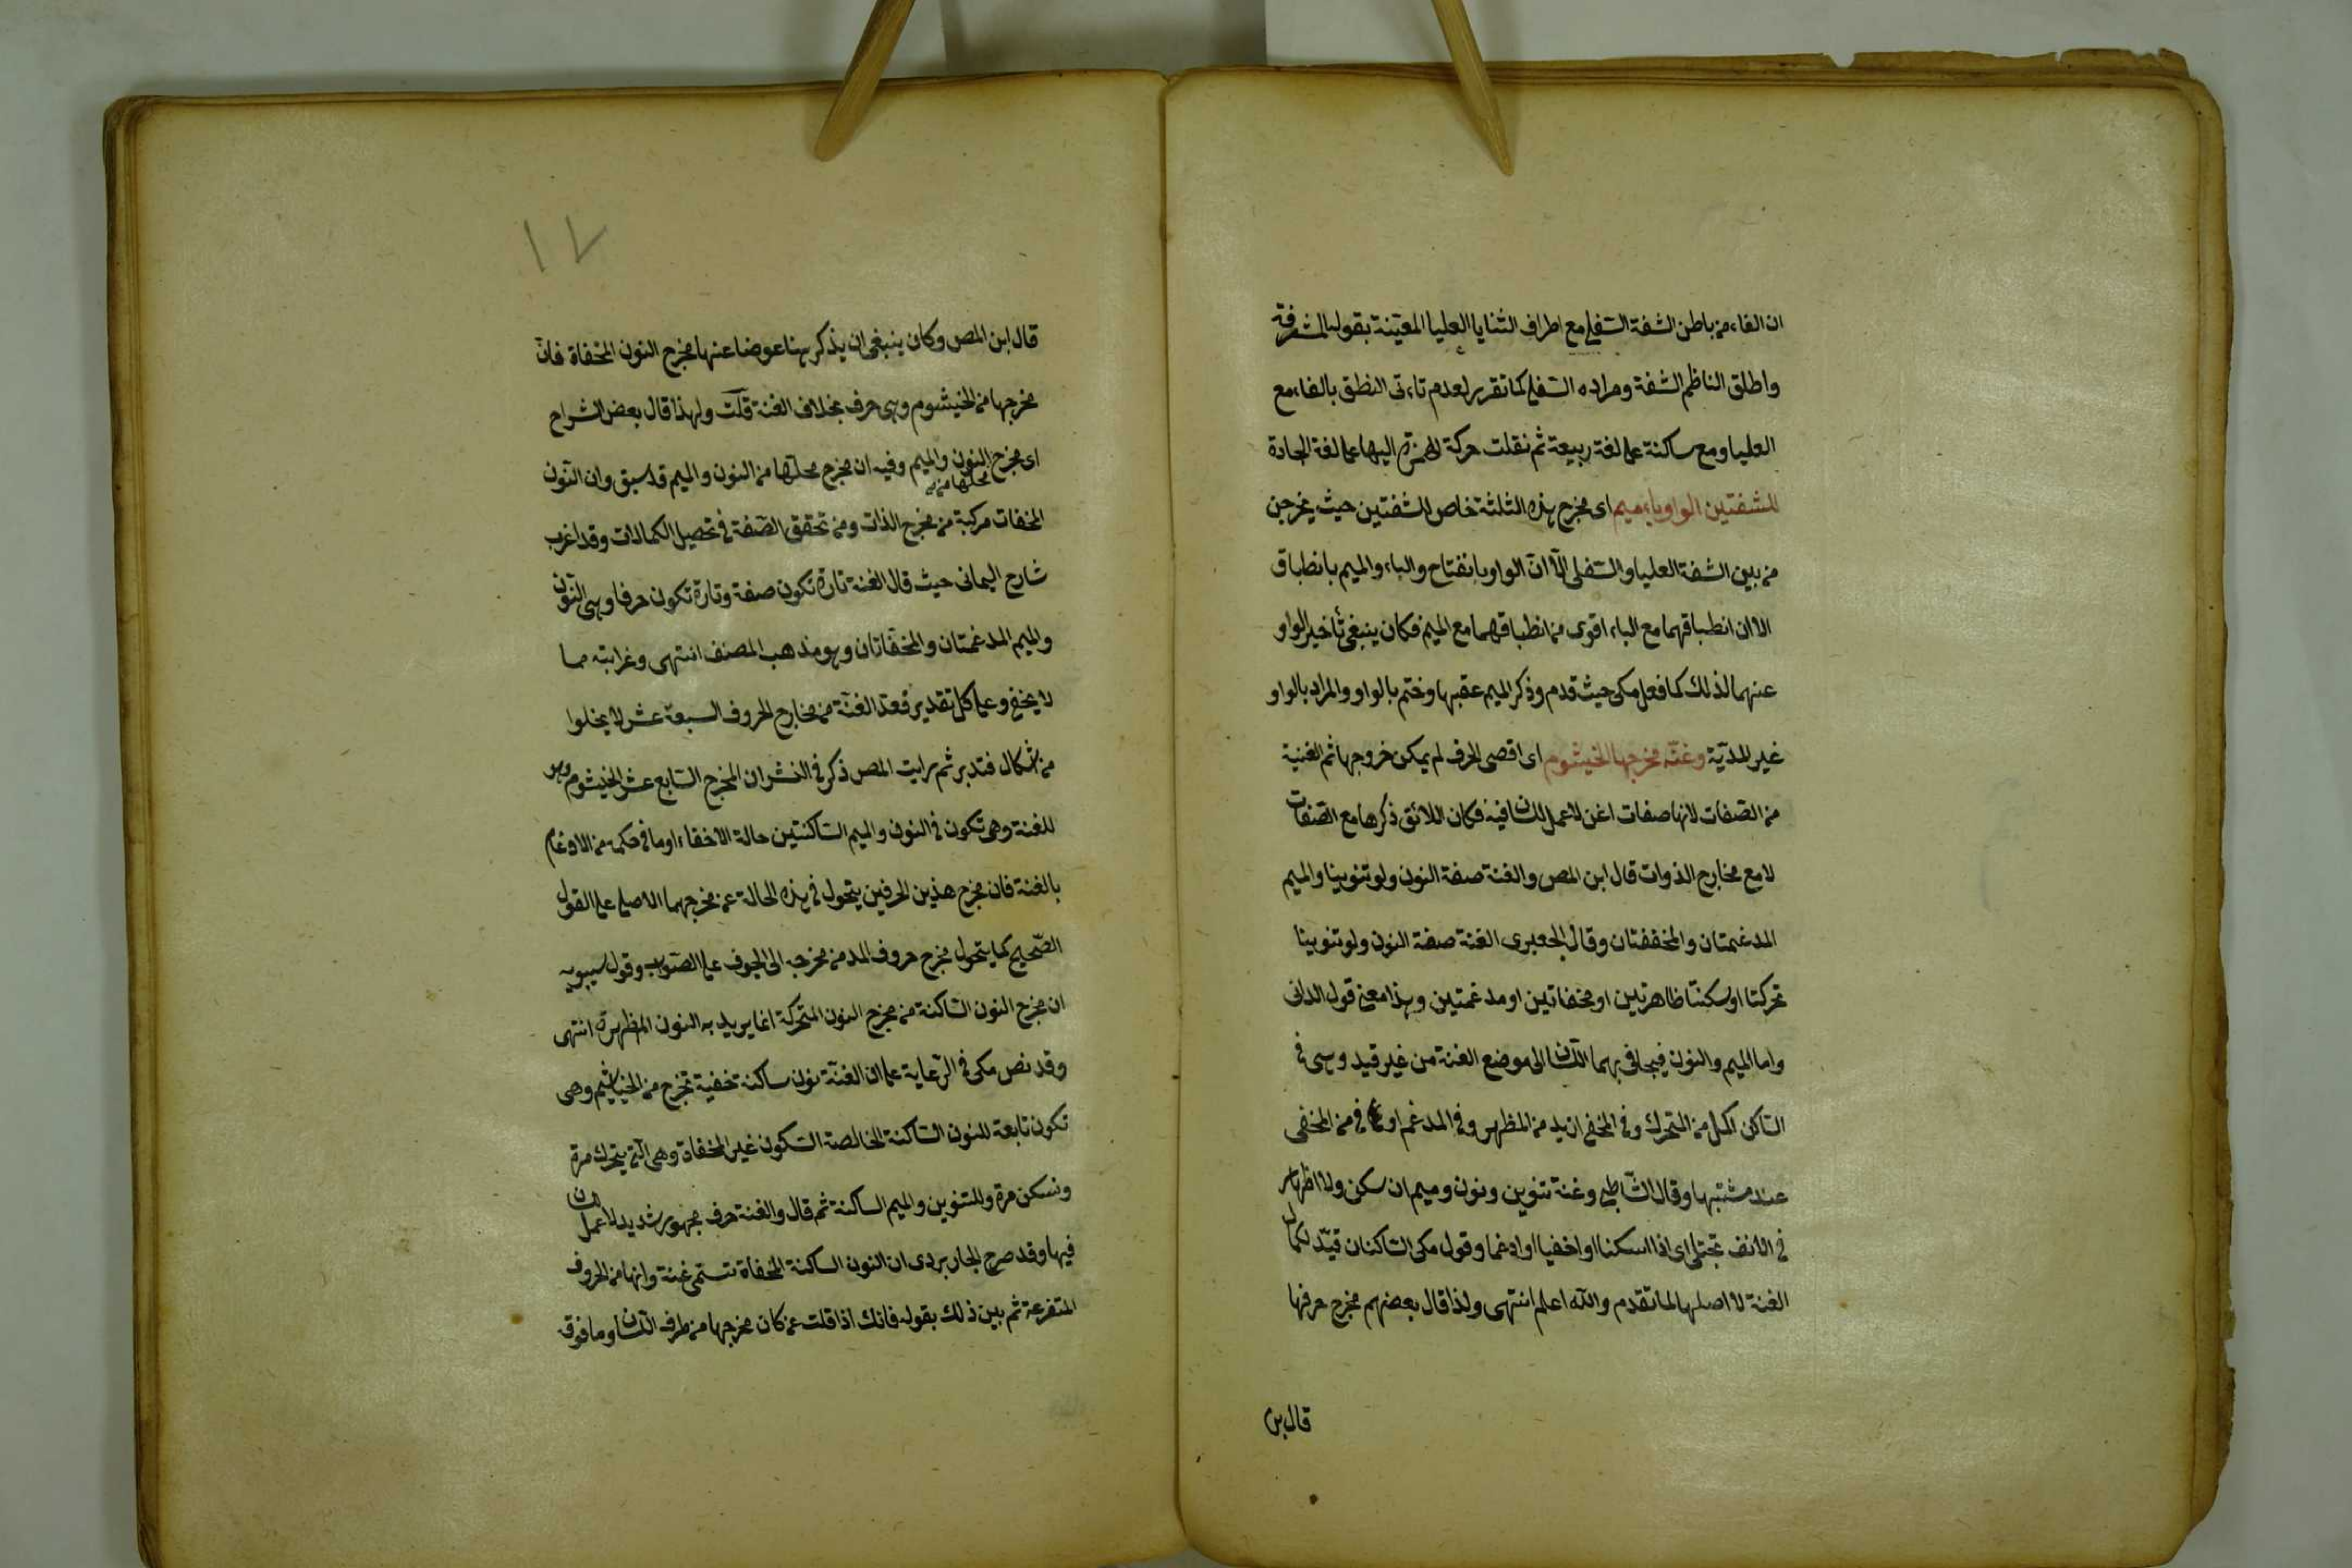 ان الفاء من باطن الشفة السفلى مع اطراف الثنايا العليا المعيّنة بقوله المشرفة
واطلق الناظم الشفة ومراده السفلى كما تقرر لعدم تاءتى النطق بالفاء مع
العليا ومع ساكنة على لغة ربيعة ثم نقلت حركة الهمزة اليها على لغة الجادة
للشفتين الواو باء ميم اى مخرج هذه الثلثة خاص للشفتين حيث يخرجن
من بين الشفة العليا والسفلى الّا انّ الواو بانفتاح والباء والميم بانطباق
الا ان انطباقهما مع الباء اقوى من انطباقهما مع الميم فكان ينبغى تأخير الواو
عنهما لذلك كما فعل مكى حيث قدم وذكر الميم عقبها وختم بالواو والمراد بالواو
غير المديّة وغنّه مخرجها الخيشوم اى اقصى الحرف لم يمكن خروجها ثم الغنية
من الصّفات لانها صفات اغن لا عمل للسان فيه فكان اللائق ذكرها مع الصّفات
لا مع مخارج الذوات قال ابن المص والغنة صفة النون ولو تنوينا والميم
المدغمتان والمخففتان وقال الجعبرى الغنة صفة النون ولو تنوينا
تحركتا او سكنتا ظاهرتين او مخفاتين او مدغمتين وهذا معنى قول الدانى
واما الميم والنون فيجافى بهما اللسان الى موضع الغنة من غير قيد وهى فى
الساكن اكمل من المتحرك وفى المخفى ازيد من المظهر وفى المدغم او فى من المخفى
عند مشتبها وقال الشّاطبى وغنة تنوين ونون وميم ان سكن ولا اظهار
فى الانف تجتلى اى اذا اسكنا او اخفيا او ادغما وقول مكى الساكنان قيّد لكمال
الغنة لا اصلها لما تقدم والله اعلم انتهى ولذا قال بعضهم مخرج حرفها
قال بن
١٧
قال ابن المص وكان ينبغى ان يذكر هنا عوضا عنها مخرج النون المخفاة فانّ
مخرجها من الخيشوم وهى حرف بخلاف الغنة قلت ولهذا قال بعض الشراح
اى مخرج النون والميم وفيه ان مخرج محلّها من النون والميم قد سبق وان النّون
محلها من
المخفات مركبة من مخرج الذات ومن تحقق الصّفة فى تحصيل الكمالات وقد اغرب
شارح اليمانى حيث قال الغنة تارة تكون صفة وتارة تكون حرفا وهى النّون
والميم المدغمتان والمخفاتان وهو مذهب المصنف انتهى وغرابته مما
لا يخفى وعلى كل تقدير فعد الغنّة من مخارج الحروف السبعة عشر لا يخلوا
من اشكال فتدبر ثم رايت المص ذكر فى النشر ان المخرج السّابع عشر الخيشوم وهو
للغنة وهى تكون فى النون والميم السّاكنتين حالة الاخفاء او ما فى حكمه من الادغام
بالغنة فان مخرج هذين الحرفين يتحول فى هذه الحالة عن مخرجهما الاصلى على القول
الصّحيح كما يتحول مخرج حروف المد من مخرجه الى الجوف على الصّواب وقول سيبويه
ان مخرج النون السّاكنة من مخرج النون المتحركة انما يريد به النون المظهرة انتهى
وقد نص مكى فى الرّعاية على ان الغنّة نون ساكنة خفية تخرج من الخياشيم وهى
تكون تابعة للنون السّاكنة الخالصة السّكون غير المخفاة وهى الّتى يتحرك مرة
وتسكن مرة وللتنوين والميم الساكنة ثم قال والغنة حرف مجهور شديد لا عمل للسان
فيها وقد صرح الجاربردى ان النون الساكنة المخفاة تسمّى غنة وانها من الحروف
المتفرعة ثم بين ذلك بقوله فانك اذا قلت عن كان مخرجها من طرف اللّسان وما فوقه